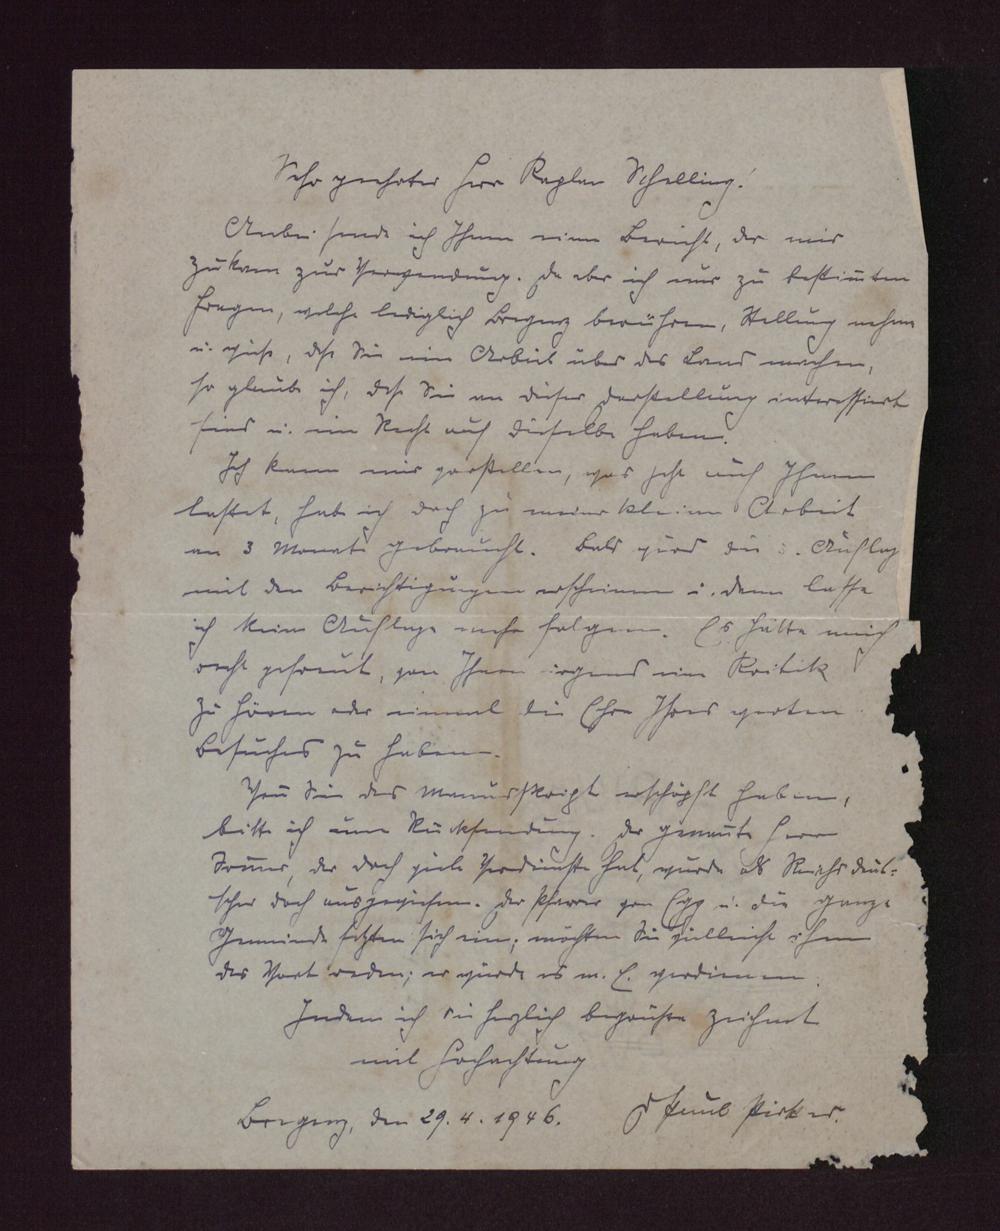 Sehr geehrter Herr Kaplan Schelling!
Anbei sende ich Ihnen einen Bericht, der mir
zukam zur Verwendung. Da aber ich nur zu bestim̄ten
Fragen, welche lediglich Bregenz berühren, Stellung nehme
u. weiß, daß Sie eine Arbeit über das Land machen,
so glaube ich, daß Sie an dieser Darstellung interessiert
sind u. ein Recht auf dieselbe haben.
Ich kann mir vorstellen, was jetzt auf Ihnen
lastet, habe ich doch zu meiner kleinen Arbeit
an 3 Monate gebraucht. Bald wird die 3. Auflage
mit den Berichtigungen erscheinen u. dann lasse
ich keine Auflage mehr folgen. Es hätte mich
recht gefreut, von Ihnen irgend eine Kritik
zu hören oder einmal die Ehre Ihres werten
Besuches zu haben.
Wen̄ Sie das Manusskript erschöpft haben,
bitte ich um Rücksendung. Der genan̄te Herr
Som̄er, der doch viele Verdienste hat, wurde als Reichsdeut-
scher doch ausgewiesen. Der Pfarrer von Egg u. die ganze
Gemeinde setzten sich ein; möchten Sie vielleicht ihm
das Wort reden; er würde es m. E. verdienen.
Indem ich Sie herzlich begrüße zeichnet
mit Hochachtung
Bregenz, den 29.4.1946. Paul Pirker.